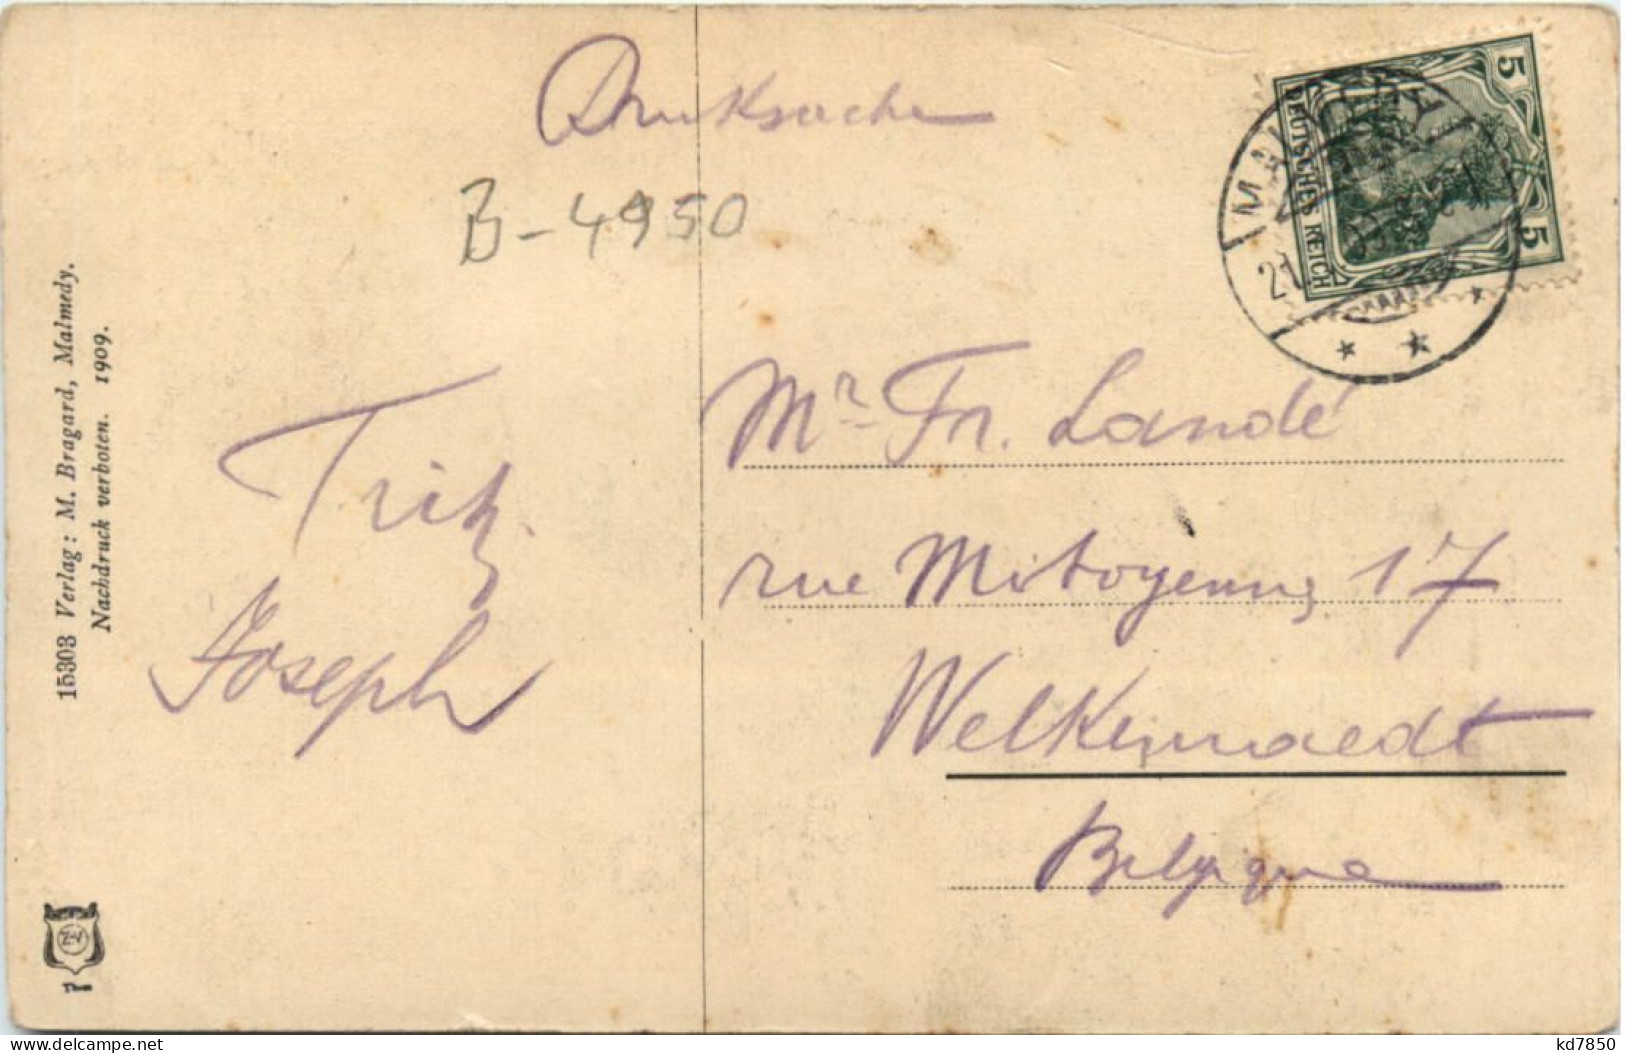 Drucksache
B-4950
5
DEUTSCHES REICH
5
15303 Verlag: M. Bragard, Malmedy.
Nachdruck verboten. 1909.
Fritz.
Joseph
Mr Fr. Landé
rue Mitoyenne 17
Welkenraedt
Belgique
www.delcampe.net
kd7850